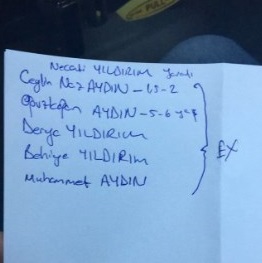 Necati YILDIRIM yaralı
Ceylin Naz AYDIN - 1,5-2
Oğuzkağan AYDIN - 5-6 yaş
Derya YILDIRIM
Behiye YILDIRIM
EX
Muhammet AYDIN